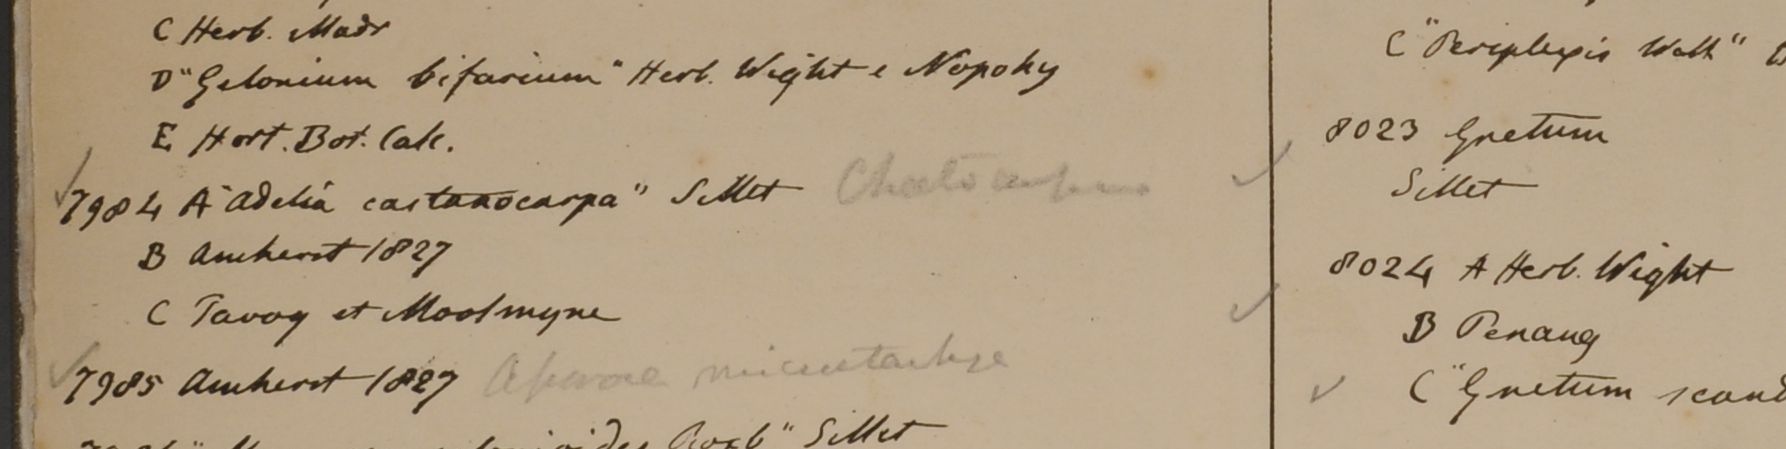 C Herb. Madr
D "Gelonium bifarium" Herb. Wight e Nopoky
E Hort. Bot. Calc.
7984 A "Adelia castanocarpa" Sillet Chaetocarpus
B Amherst 1827
C Tavoy et Moolmyne
7985 Amherst 1827 Aporosa microstachya
Roxb" Sillet
C "Periplexis Wall"
8023 Gnetum
Sillet
8024 A Herb. Wight
B Penang
C "Gnetum scand